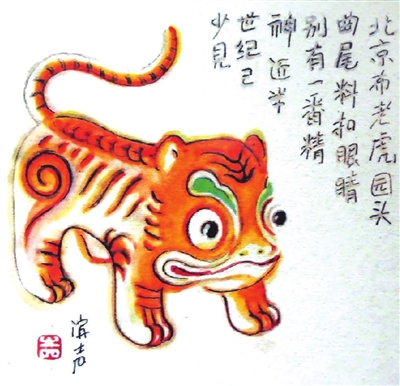 北京布老虎园头
曲尾料扣眼睛
别有一番精
神近半
世纪已
少見